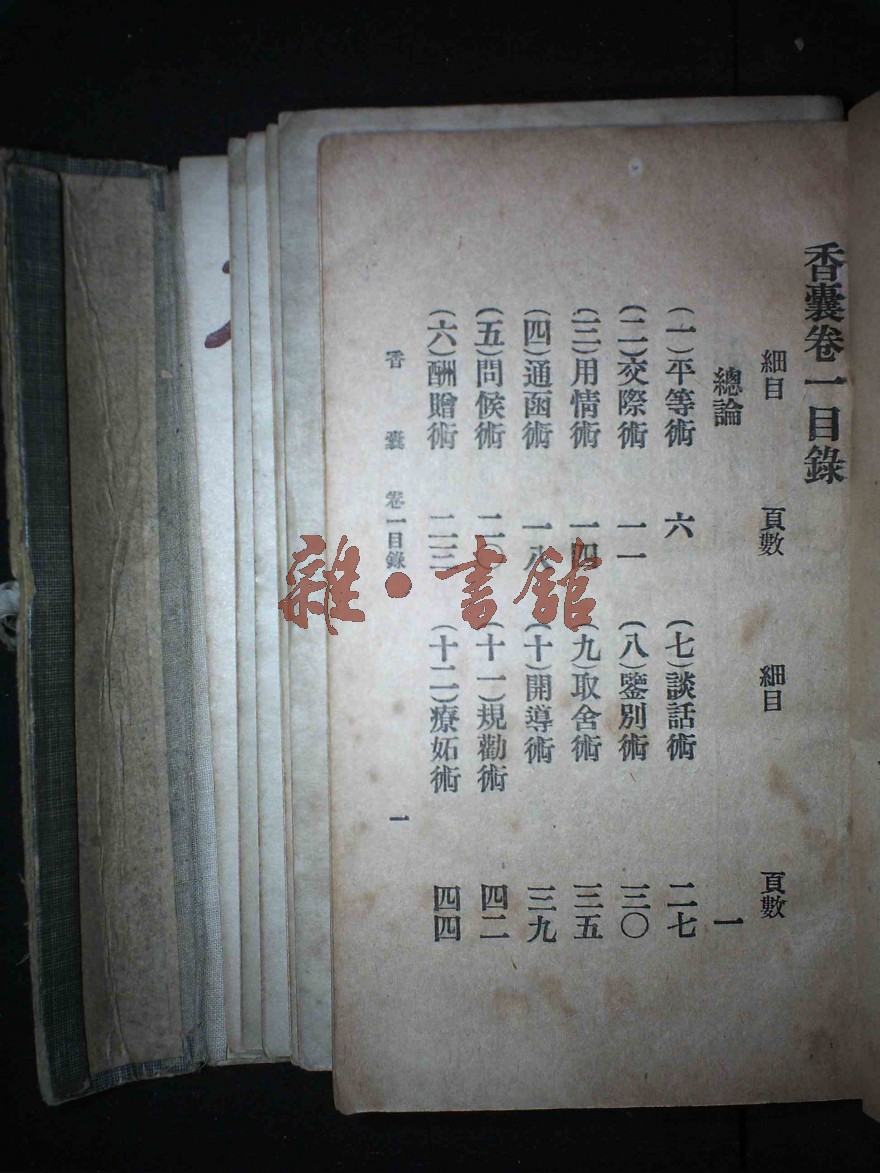 香囊卷一目錄
細目　頁數　細目　頁數
總論　一
(一)平等術　六　(七)談話術　二七
(二)交際術　一一　(八)鑒別術　三〇
(三)用情術　一四　(九)取舍術　三五
(四)通函術　一八　(十)開導術　三九
(五)問候術　二〇　(十一)規勸術　四二
(六)酬贈術　二三　(十二)療妬術　四四
香囊　卷一目錄　一
雜·書館